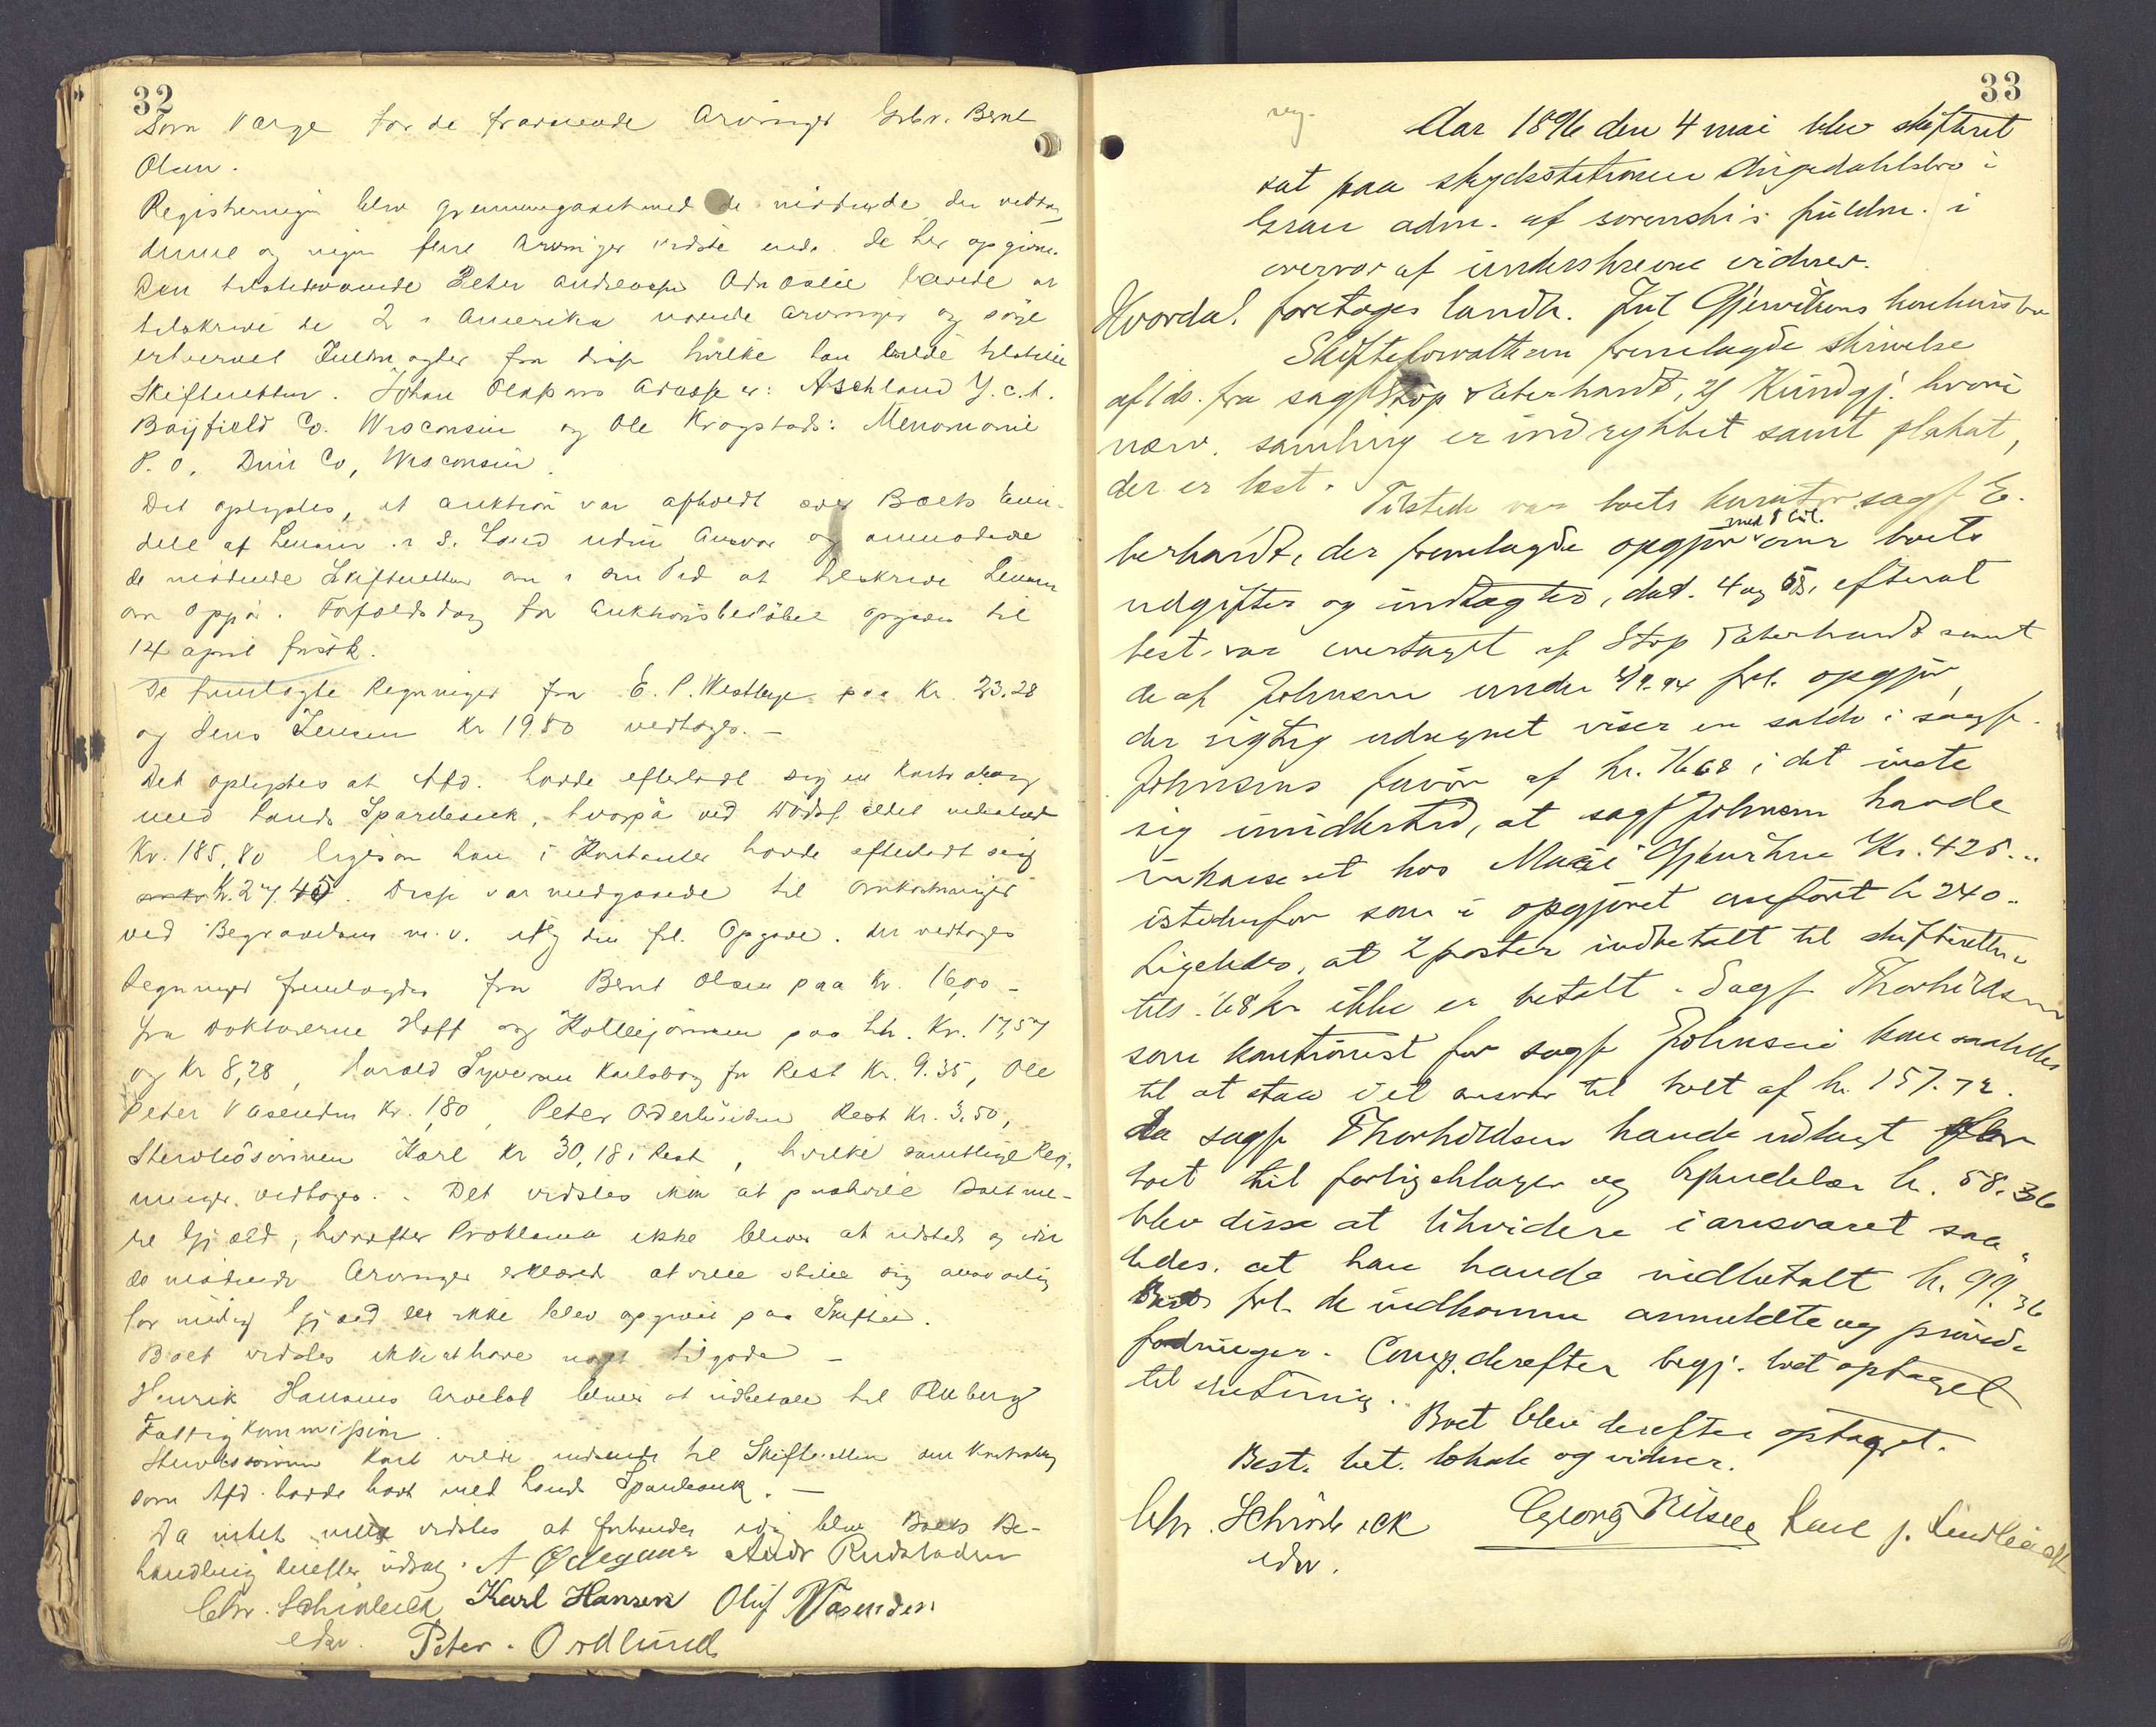 32
Som Værge for de fraværende Arvinger Grbr. Bernt
Olsen.
Registreringen blev gjennemgaaet med de mödende der vedtog
denne og ingen flere Arvinger vidste end de her opgivne.
Den tilstedeværende Peter Andreassen lovede at
tilskrive de 2 i Amerika værende Arvinger og söge
erhvervet Fuldmagter fra disse hvilke han vilde tilstille
Skifteretten. Johan Olsens Adresse er: Aschland
Bayfield Co. Wisconsin og Ole Krogstads: Menomonie
P. O. Dun Co, Wisconsin.
Det oplystes, at Auktion var afholdt over Boets Eien-
dele af Lensm. i S. Land uden Ansvar og anmodede
de mödende Skifteretten om i sin Tid at tilskrive Lensm
om Opgjör. Forfaldsdag for Auktionsbelöbet opgives til
14 april
De fremlagte Regninger fra E. P. Westby paa Kr. 23.28
og Jens Jensen Kr 19.80 vedtoges. –
Det oplystes at Afd. havde efterladt sig en Kontrabog
med Lands Sparebank, hvorpå ved Dödsfaldet indestod
Kr. 185,80 ligesom han i Kontanter havde efterladt sig
Kr. 27.45. Disse var medgaaede til Omkostninger
ved Begravelsen m. v. ifg den frl. Opgave. der vedtoges
Regninger fremlagdes fra Bernt Olsen paa Kr. 16,00 –
fra Doktorerne Hoff og paa hh. Kr. 17,57
og Kr 8,28, Harald Syversen Karlsborg for Rest Kr. 9.35, Ole
Peter Vasenden Kr. 1,80, Peter Rest Kr. 3.50,
Stervbosönnen Karl Kr 30,18 i Rest, hvilke samtlige Reg-
ninger vedtoges. – Det vidstes ikke at paahvile Boet me-
re Gjæld, hvorefter Proklama ikke bliver at udstede og idet
de mödende Arvinger erklærede at ville stille sig ansvarlig
for mulig Gjæld der ikke blev opgivet paa Skiftet.
Boet vidstes ikke at have noget tilgode –
Henrik Hansens Arvelod bliver at udbetale til Fluberg
Fattigkommission.
Stervbosönnen Karl vilde indsende til Skifteretten den Kontrabog
som Afd. havde havt med Lands Sparebank. –
Da intet mere vidstes at forhandes idag blev Boets Be-
handling derefter udsat. A Ødegaard Andr Rudstaden
Chr. Schiöbeck Karl Hansen Oluf Vasenden
edsv. Peter. Ordlund
33
reg.
Aar 1896 den 4 mai blev skifteret
sat paa skydsstationen Augedahlsbro i
Gran adm. af sorenskr's fuldm. i
overvær af underskrevne vidner.
Hvorda! foretoges landh. Juul Gjerviksens konkursbo
Skifteforvalteren fremlagde skrivelse
af ds. fra sagf Stop & Eberhardt, Kundgj. hvori
nærv. samling er indrykket samt plakat,
der er læst.
Tilstede var boets kurator sagf E-
berhardt, der fremlagde opgjör med bil. over boets
udgifter og indtægter, dat. 4 ds. efterat
best. var overtaget af Stop & Eberhardt samt
de af Johnsen under 4/9.94 frl. opgjör,
der rigtig udregnet viser en saldo i sagf.
Johnsens favör af kr. 76.68 i det viste
sig imidlertid, at sagf Johnsen havde
inkasseret hos Gjerviksen Kr. 425..
istedenfor som i opgjöret anfört kr 240..
Ligeledes, at 2 poster indbetalt til skifteretten
tils. 68 kr ikke er betalt. Sagf Thorkildsen
som kautionist for sagf Johnsen kom saaledes
til at staa i et ansvar til boet af kr. 157.72.
Da sagf Thorkildsen havde udlagt
boet til forligsklager og kr. 58.36
blev disse at likvidere i ansvaret saa-
ledes at han havde indbetalt kr. 99.36
frl. de indkomne anmeldte og prövede
fodringer. Comp. derefter begj. boet optaget
til slutning.
Boet blev derefter optaget.
Best. bet. lokale og vidner.
Chr. Schiöbeck Georg Nilsen Karl J.
edsv.